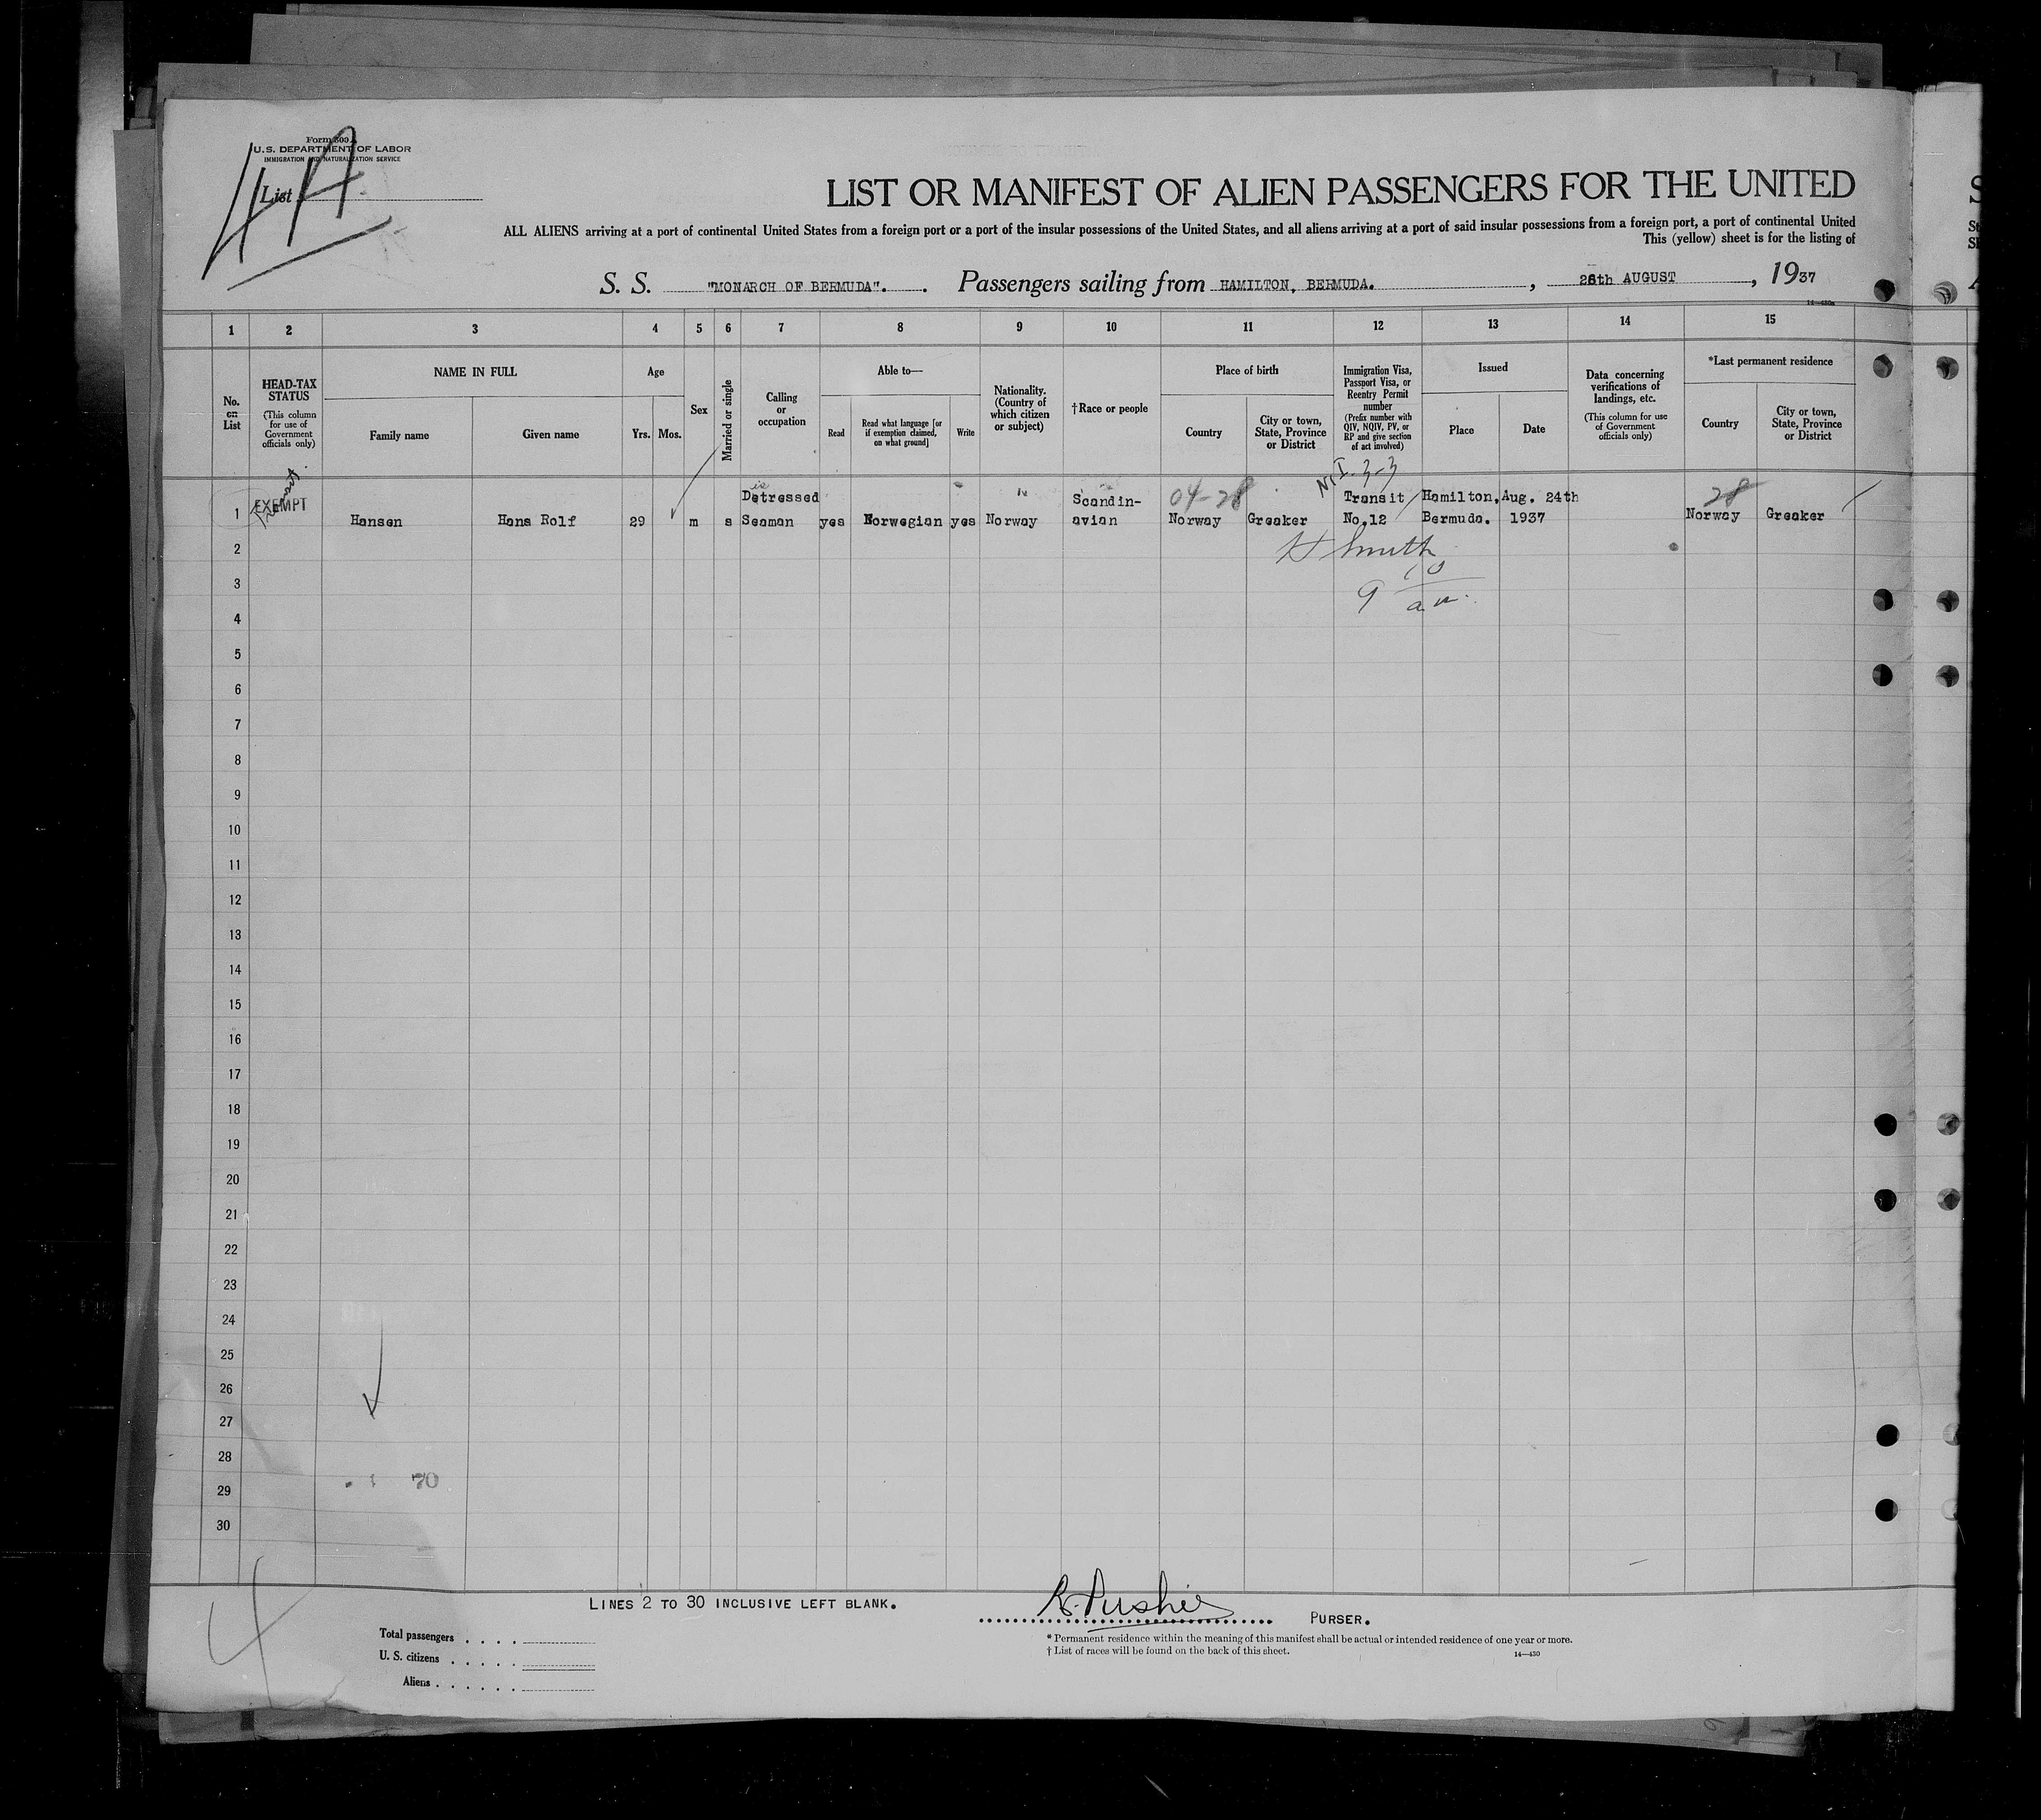 Form 500
U.S. DEPARTMENT OF LABOR
IMMIGRATION AND NATURALIZATION SERVICE
List 4A
LIST OR MANIFEST OF ALIEN PASSENGERS FOR THE UNITED
ALL ALIENS arriving at a port of continental United States from a foreign port or a port of the insular possessions of the United States, and all aliens arriving at a port of said insular possessions from a foreign port, a port of continental United
This (yellow) sheet is for the listing of
S. S. "MONARCH OF BERMUDA". Passengers sailing from HAMILTON, BERMUDA. , 26th AUGUST , 1937
1 2 3 4 5 6 7 8 9 10 11 12 13 14 15
No. on List
HEAD-TAX STATUS
(This column for use of Government officials only)
NAME IN FULL
Family name
Given name
Age
Yrs. Mos.
Sex
Married or single
Calling or occupation
Able to—
Read
Read what language [or if exemption claimed, on what ground]
Write
Nationality. (Country of which citizen or subject)
†Race or people
Place of birth
Country
City or town, State, Province or District
Immigration Visa, Passport Visa, or Reentry Permit number
(Prefix number with QIV, NQIV, PV, or RP and give section of act involved)
Issued
Place
Date
Data concerning verifications of landings, etc.
(This column for use of Government officials only)
*Last permanent residence
Country
City or town, State, Province or District
Transit
EXEMPT
is
Detressed
Scandin-
04-28
3-3
Transit Hamilton, Aug. 24th
28
1 Hansen Hans Rolf 29 m s Seaman yes Norwegian yes Norway avian Norway Greaker No.12 Bermuda. 1937 Norway Greaker
H Smith
9 10 a.m.
2
3
4
5
6
7
8
9
10
11
12
13
14
15
16
17
18
19
20
21
22
23
24
25
26
27
28
70
29
30
4
LINES 2 TO 30 INCLUSIVE LEFT BLANK.
PURSER.
Total passengers
U. S. citizens
Aliens
* Permanent residence within the meaning of this manifest shall be actual or intended residence of one year or more.
† List of races will be found on the back of this sheet.
14—430